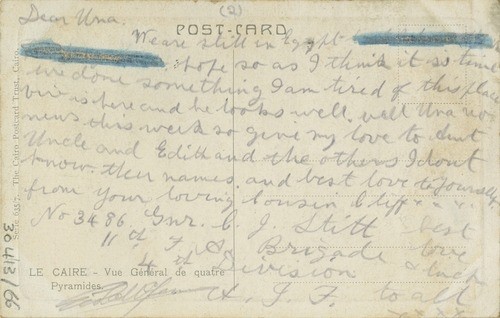 (2)
Dear Una.
POST-CARD
We are still in Egypt
hope so as I think it is time
we done something I am tired of this place
is here and he looks well. well Una no
news this week so give my love to Aunt
Uncle and Edith and the others I dont
know their names. and best love to yourself
from your loving Cousin Cliff x x x
No 3486 Gnr. C. J. Stitt best
11 th F. A. Brigade love
4 th Division & luck
A. I. F. to all
x x x x
LE CAIRE - Vue Général de quatre
Pyramides.
Serie 637. The Cairo Postcard Trust, Cairo.
3041/3/66